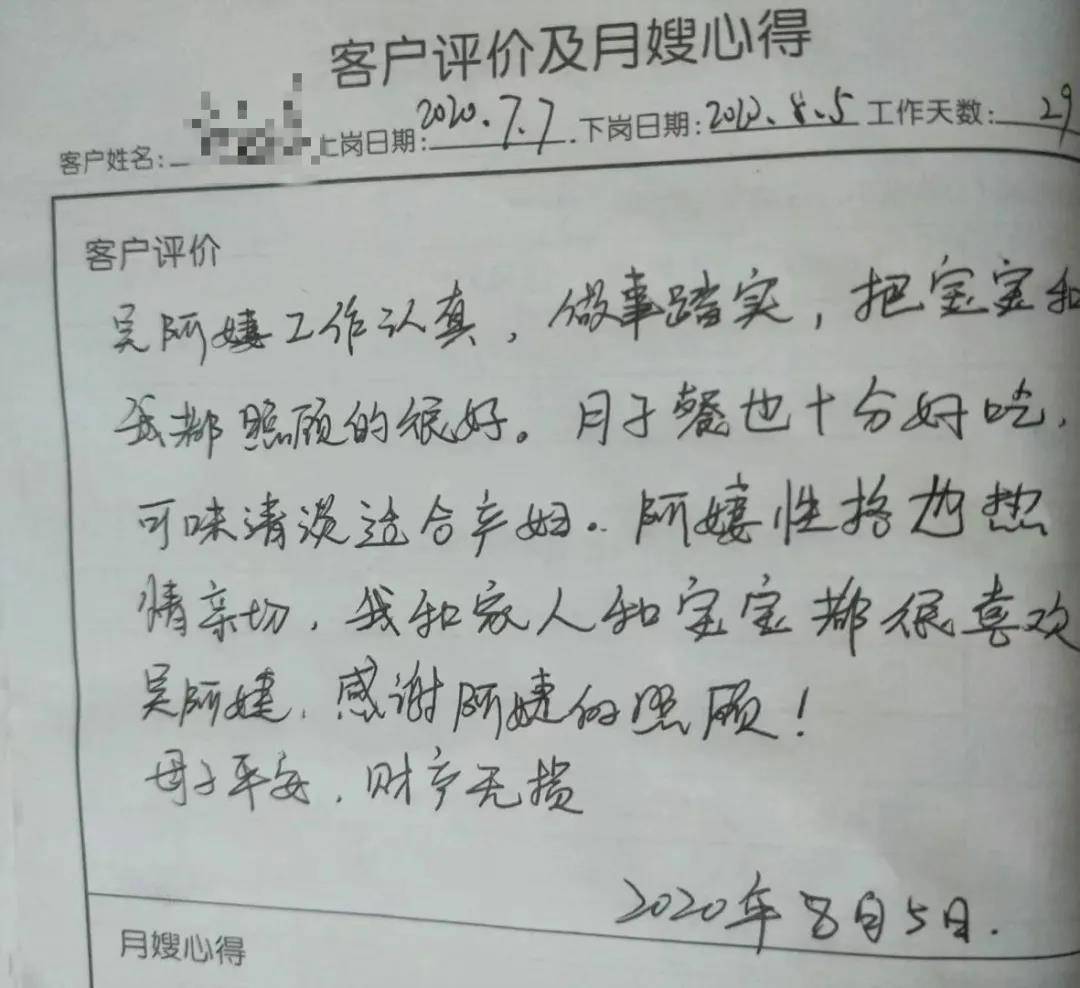 客户评价及月嫂心得
客户姓名: 上岗日期:2020.7.7 下岗日期:2020.8.5 工作天数: 29
客户评价
吴阿姨工作认真，做事踏实，把宝宝和
我都照顾的很好。月子餐也十分好吃，
可味清淡适合产妇。阿姨性格也热
情亲切，我和家人和宝宝都很喜欢
吴阿姨，感谢阿姨的照顾！
母子平安，财产无损
2020年8月5日.
月嫂心得